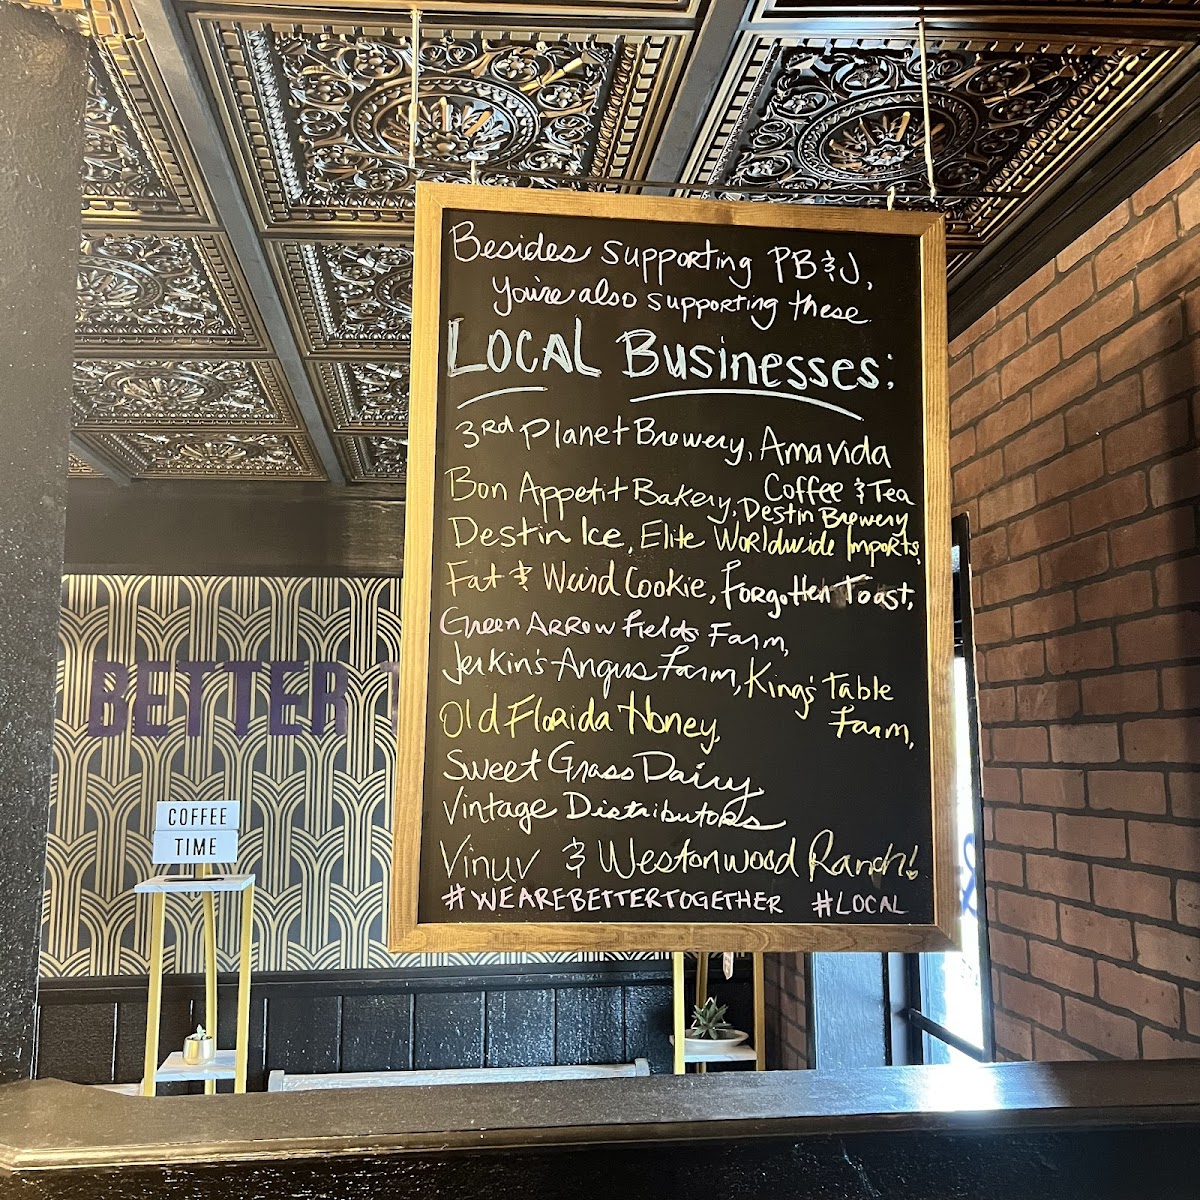 Besides supporting PB&J,
you're also supporting these
LOCAL BUSINESSES:
3rd Planet Brewery, Amavida
Coffee & Tea
Bon Appetit Bakery, Destin Brewery
Destin Ice, Elite Worldwide Imports,
Fat & Weird Cookie, Forgotten Toast,
Green Arrow Fields Farm,
Jerkin's Angus Farm, King's Table
Farm,
Old Florida Honey,
Sweet Grass Dairy,
Vintage Distributors
Vinuv & Westonwood Ranch!
#WEAREBETTERTOGETHER #LOCAL
BETTER
COFFEE
TIME